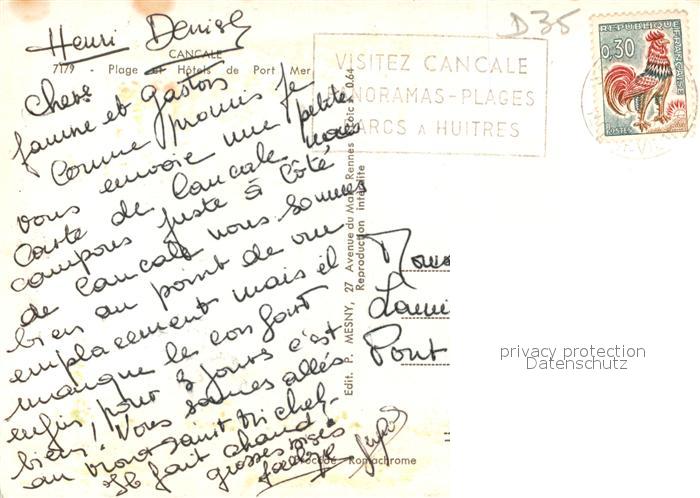 Henri Denise
D35
CANCALE
7179 - Plage et Hôtels de Port Mer
VISITEZ CANCALE
NORAMAS-PLAGES
ARCS A HUITRES
REPUBLIQUE FRANÇAISE
0,30
POSTES
Chers
famine et gaston
Comme promis je
vous envoie une petite
Carte de Cancale nous
campons juste à Côté
de Cancale nous sommes
bien au point de vue
emplacement mais il
manque le confort
enfin, pour 3 jours c'est
bien! Nous sommes allés
au Mont Saint Michel
Il fait chaud
grosses bises
Procédé Romachrome
Edit. P. MESNY, 27 Avenue du Mail Rennes
Reproduction interdite
Pont
privacy protection
Datenschutz